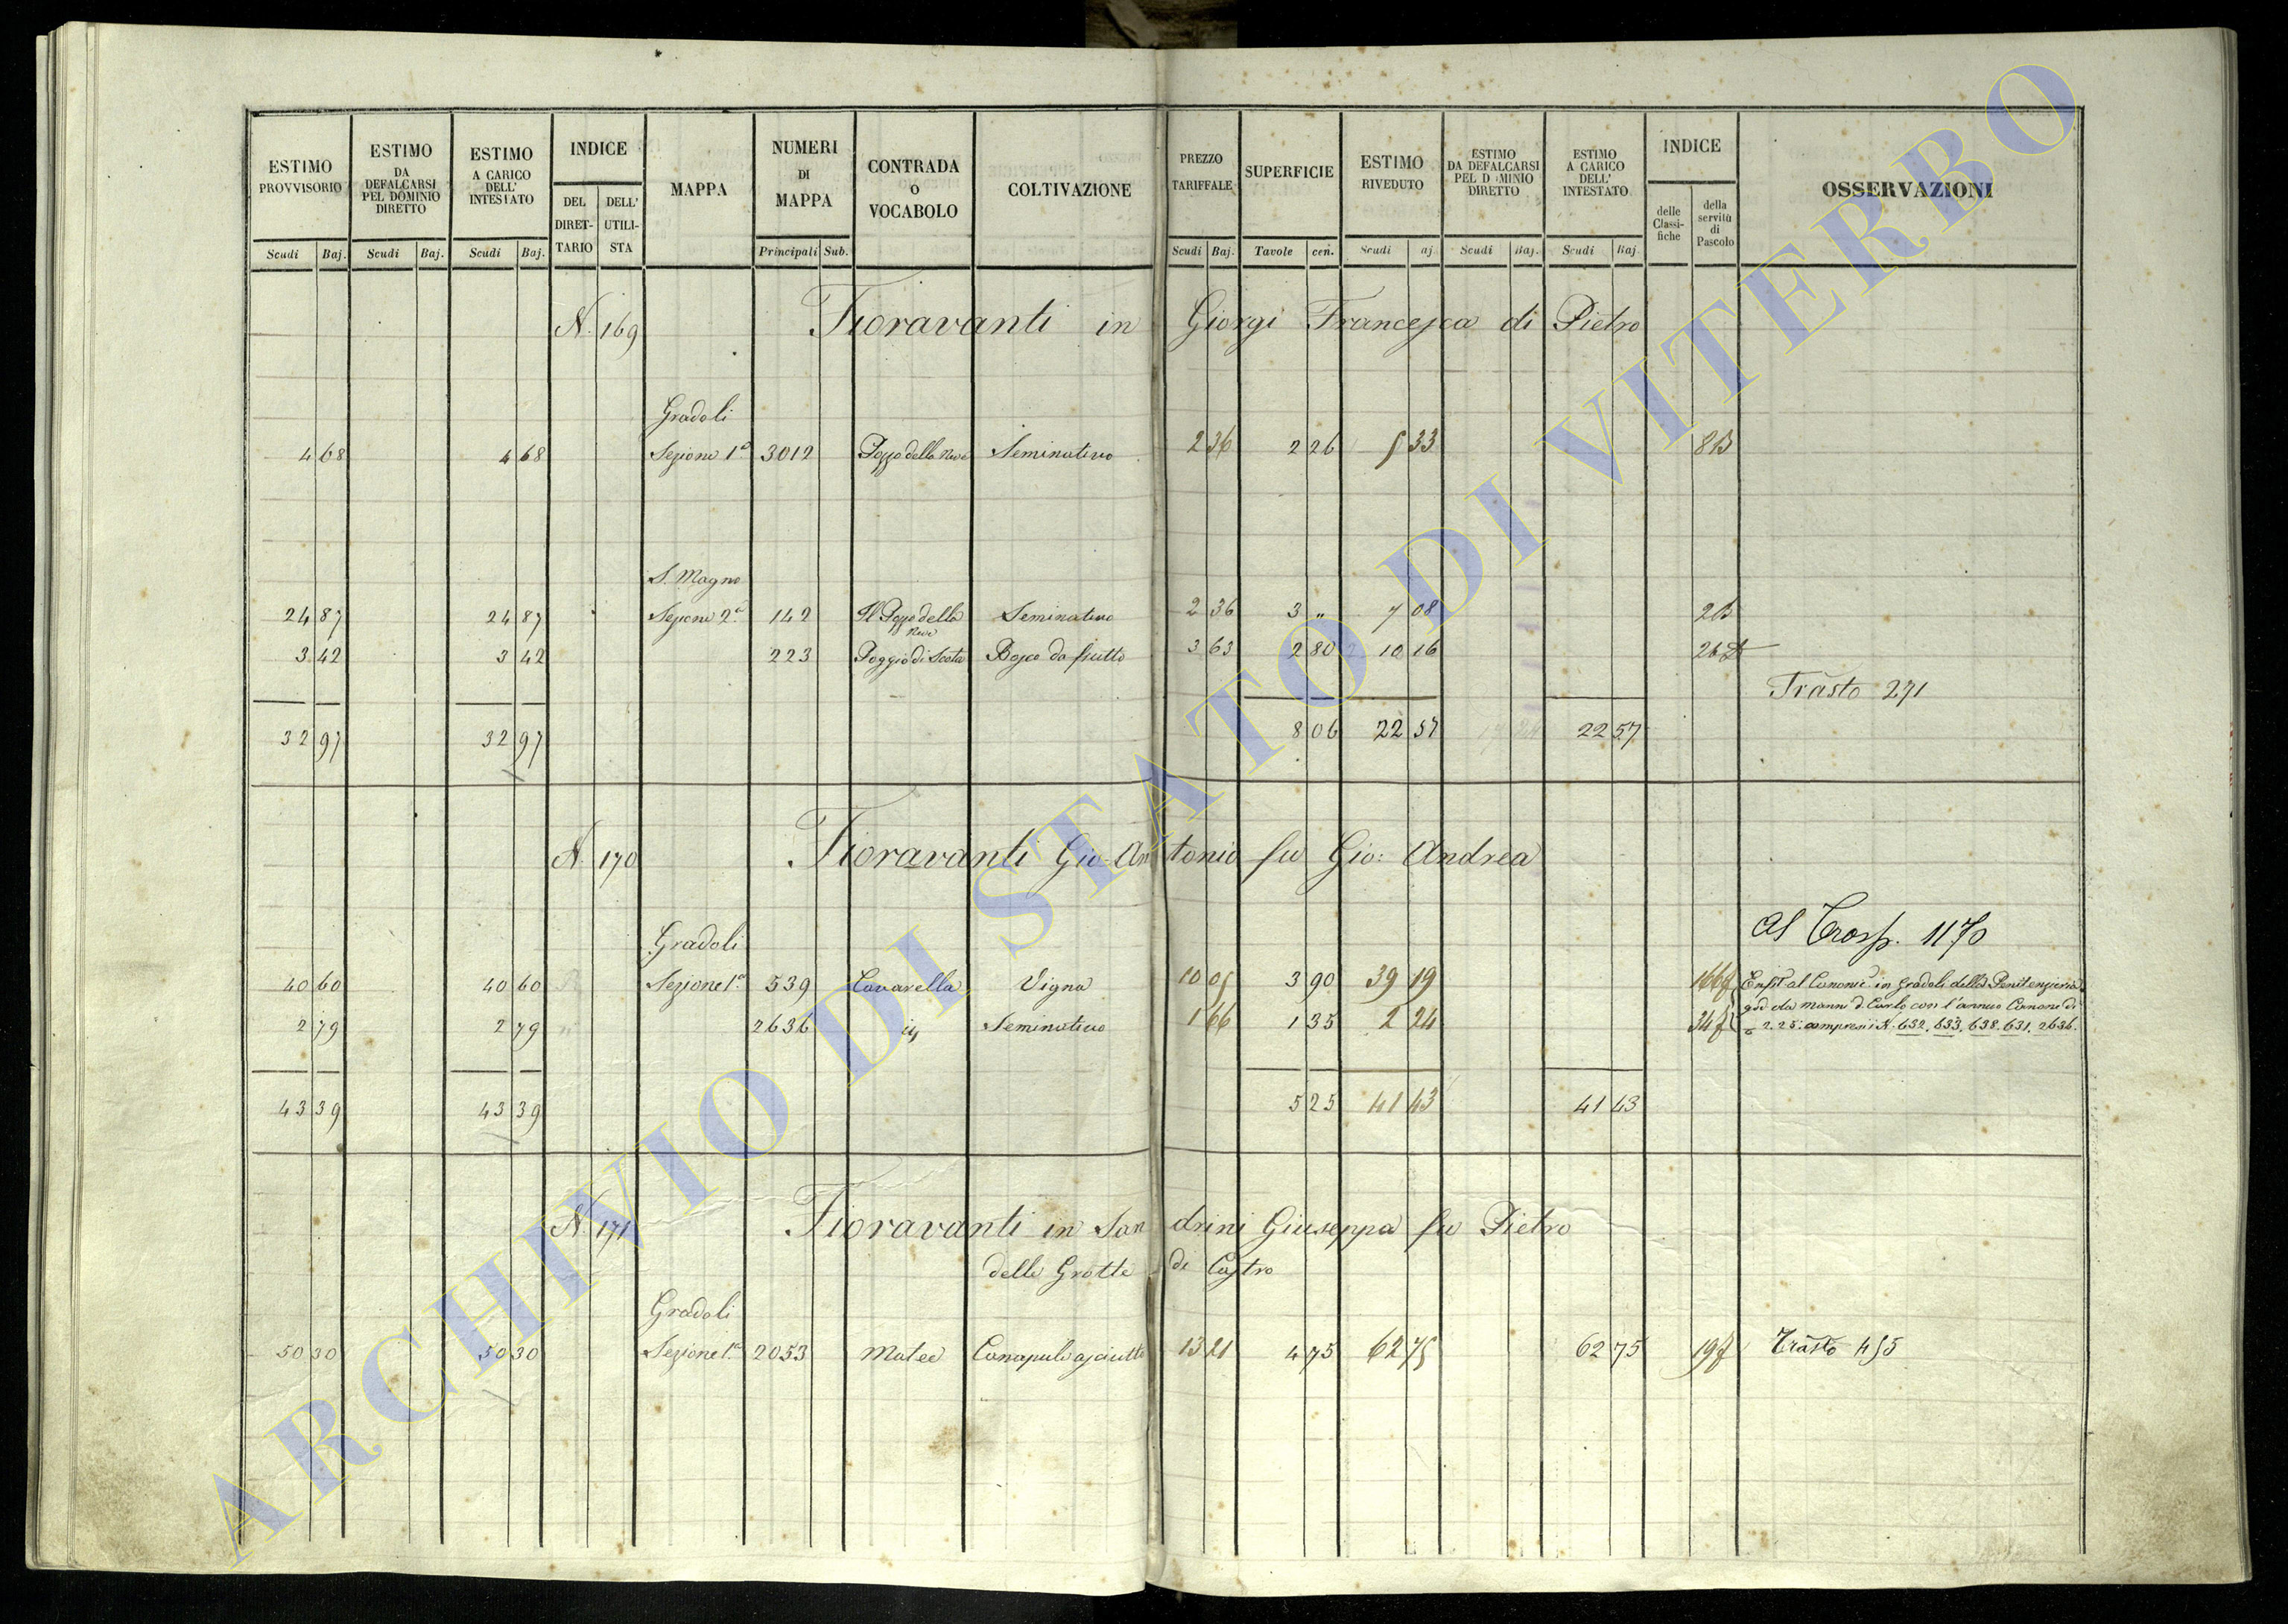 ESTIMO PROVVISORIO | ESTIMO DA DEFALCARSI PEL DOMINIO DIRETTO | ESTIMO A CARICO DELL' INTESTATO | INDICE | MAPPA | NUMERI DI MAPPA | CONTRADA O VOCABOLO | COLTIVAZIONE | PREZZO TARIFFALE | SUPERFICIE | ESTIMO RIVEDUTO | ESTIMO DA DEFALCARSI PEL D MINIO DIRETTO | ESTIMO A CARICO DELL' INTESTATO | INDICE | OSSERVAZIONI
DEL DIRETTARIO | DELL' UTILISTA | delle Classifiche | della servitù di Pascolo
Scudi | Baj. | Scudi | Baj. | Scudi | Baj. | Principali | Sub. | Scudi | Baj. | Tavole | cen. | Scudi | aj. | Scudi | Baj. | Scudi | Baj.
N. 169 Fioravanti in Giorgi Francesca di Pietro
Gradoli
4 68 | 4 68 | Sezione 1a | 3012 | Pozzo della Neve | Seminativo | 2 36 | 2 26 | 5 33 | 8B
S. Magno
24 87 | 24 87 | Sezione 2a | 142 | Il Pozzo della Neve | Seminativo | 2 36 | 3 „ | 7 08 | 2B
3 42 | 3 42 | 223 | Poggio di Scota | Bosco da frutto | 3 63 | 2 80 | 10 16
Trasto 271
32 97 | 32 97 | 8 06 | 22 57 | 22 57
N. 170 Fioravanti Gio: Antonio fu Gio: Andrea
Al Trasp. 1170
Gradoli
40 60 | 40 60 | Sezione 1a | 539 | Cavarella | Vigna | 10 05 | 3 90 | 39 19 | 166f | Enfit. al Canonic. in Gradoli della Penitenzieria
god. da Manni d. Carlo con l'annuo Canone di
2 79 | 2 79 | 2636 | Seminativo | 1 66 | 1 35 | 2 24 | 34f | 2.25. compresi N. 632. 633. 638. 631. 2636.
43 39 | 43 39 | 5 25 | 41 43 | 41 43
N. 171 Fioravanti in Sandrini Giuseppa fu Pietro
delle Grotte di Castro
Gradoli
50 30 | 50 30 | Sezione 1a | 2053 | Matee | Canapule asciutto | 13 21 | 4 75 | 62 75 | 62 75 | 19f | Trasto 455
ARCHIVIO DI STATO DI VITERBO